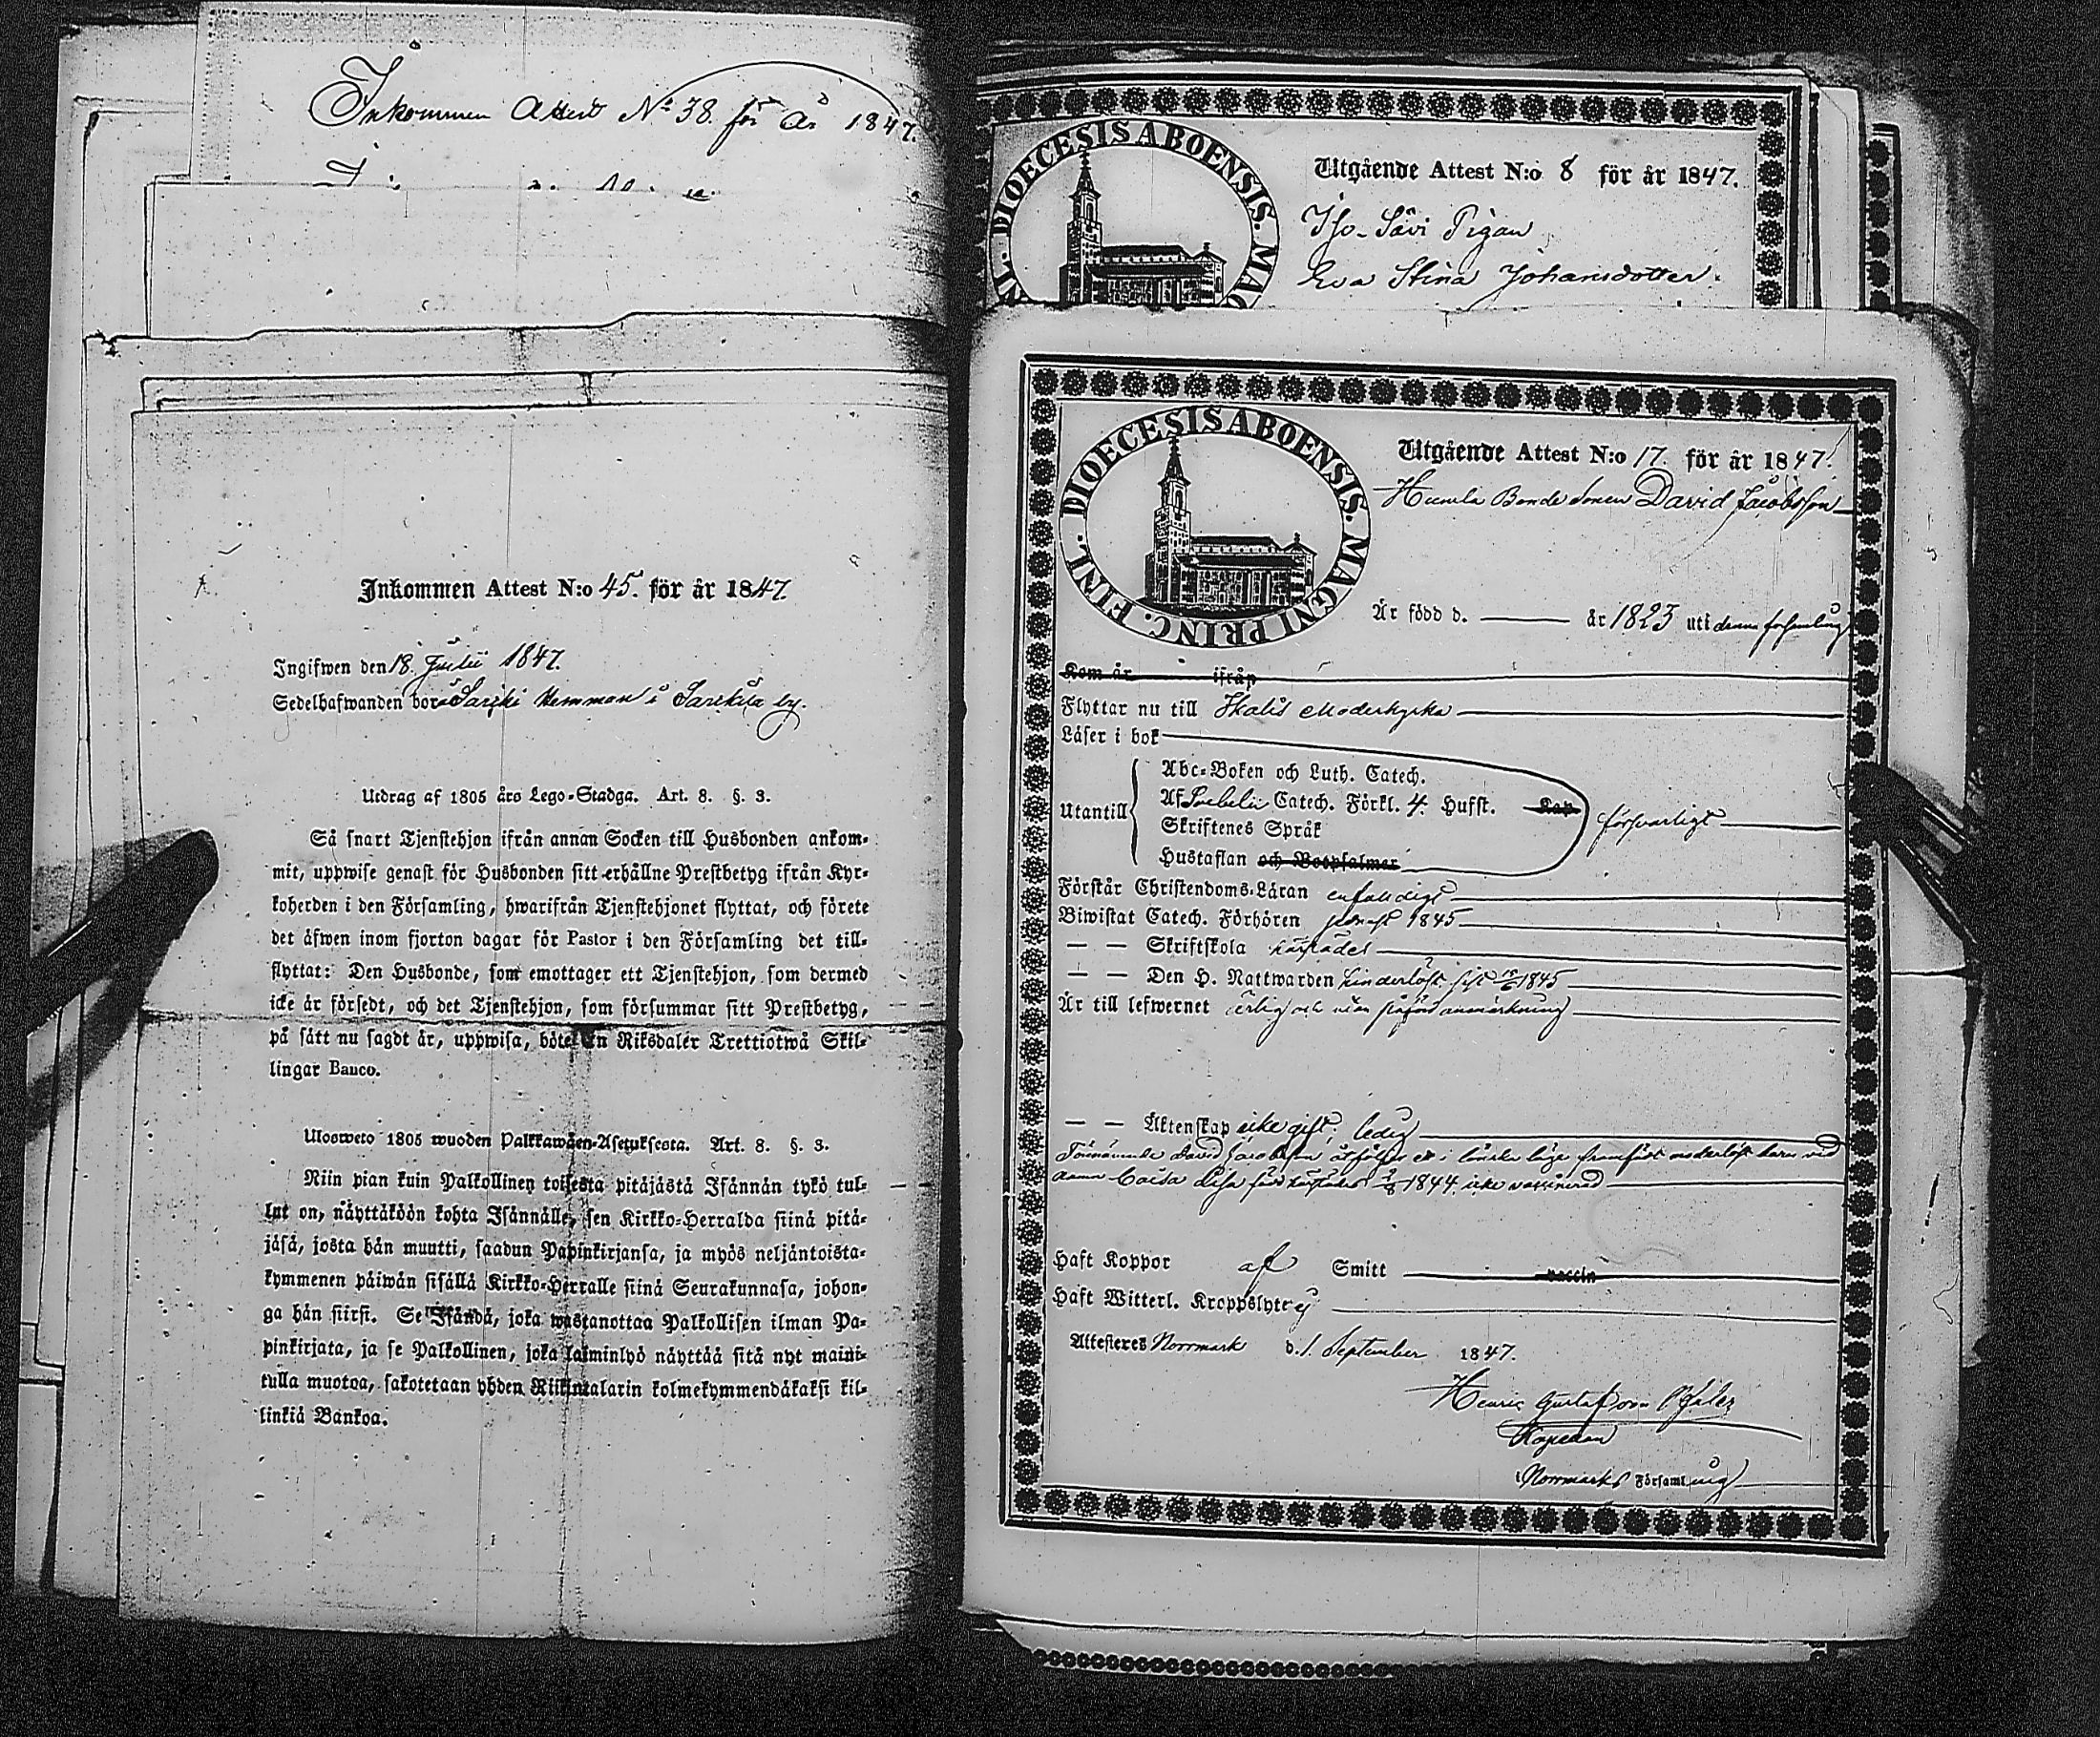 Inkommen Attest No 38. för År 1847.
Inkommen Attest N:o 45. för år 1847.
Ingifwen den 18. Julii 1847.
Sedelhafwanden bor å Sarjki Hemman i Sarkila by.
Utdrag af 1805 års Lego-Stadga. Art. 8. §. 3.
Så snart Tjenstehjon ifrån annan Socken till Husbonden ankom-
mit, uppwise genast för Husbonden sitt erhållne Prestbetyg ifrån Kyr-
koherden i den Församling, hwarifrån Tjenstehjonet flyttat, och förete
det äfwen inom fjorton dagar för Pastor i den Församling det till-
flyttat: Den Husbonde, som emottager ett Tjenstehjon, som dermed
icke är försedt, och det Tjenstehjon, som försummar sitt Prestbetyg,
på sätt nu sagdt är, uppwisa, böte En Riksdaler Trettiotwå Skil-
lingar Banco.
Ulosweto 1805 wuoden Palkkawäen-Asetuksesta. Art. 8. §. 3.
Niin pian kuin Palkollinen toisesta pitäjästä Isännän tykö tul-
lut on, näyttäköön kohta Isännälle, sen Kirkko-Herralda siinä pitä-
jäsä, josta hän muutti, saadun Papinkirjansa, ja myös neljäntoista-
kymmenen päiwän sisällä Kirkko-Herralle siinä Seurakunnasa, johon-
ga hän siirsi. Se Isändä, joka wastanottaa Palkollisen ilman Pa-
pinkirjata, ja se Palkollinen, joka laiminlyö näyttää sitä nyt maini-
tulla muotoa, sakotetaan yhden Riikintalarin kolmekymmendäkaksi kil-
linkiä Bankoa.
DIOECESIS ABOENSIS. MAG
Utgående Attest N:o 8 för år 1847.
Iso-Sävi Pigan
Eva Stina Johansdotter.
DIOECESIS ABOENSIS. MAGNI PRINC. FINL.
Utgående Attest N:o 17. för år 1847.
Humla Bonde Sonen David Jacobsson
Är född d. år 1823 uti denna församling
Kom år ifrån
Flyttar nu till Ikalis Moderkyrka
Läser i bok
Utantill
Abc-Boken och Luth. Catech.
Af Svebelii Catech. Förkl. 4. Hufst. Kap
Skriftenes Språk
Hustaflan och Botpsalmer
försvarligt
Förstår Christendoms-Läran enfaldigt
Biwistat Catech. Förhören senast 1845
— — Skriftskola
— — Den H. Nattwarden hinderlöst sist 1845
Är till lefwernet ärlig och utan anmärkning
— — Äktenskap icke gift; ledig
David Jacobsson
1844. icke vaccinerad
Haft Koppor af Smitt vaccin
Haft Witterl. Kroppslyte ej
Attesteres Norrmark d. 1. September 1847.
Henric Gustaf von Pfaler
Kapellan
i Norrmarks Församling